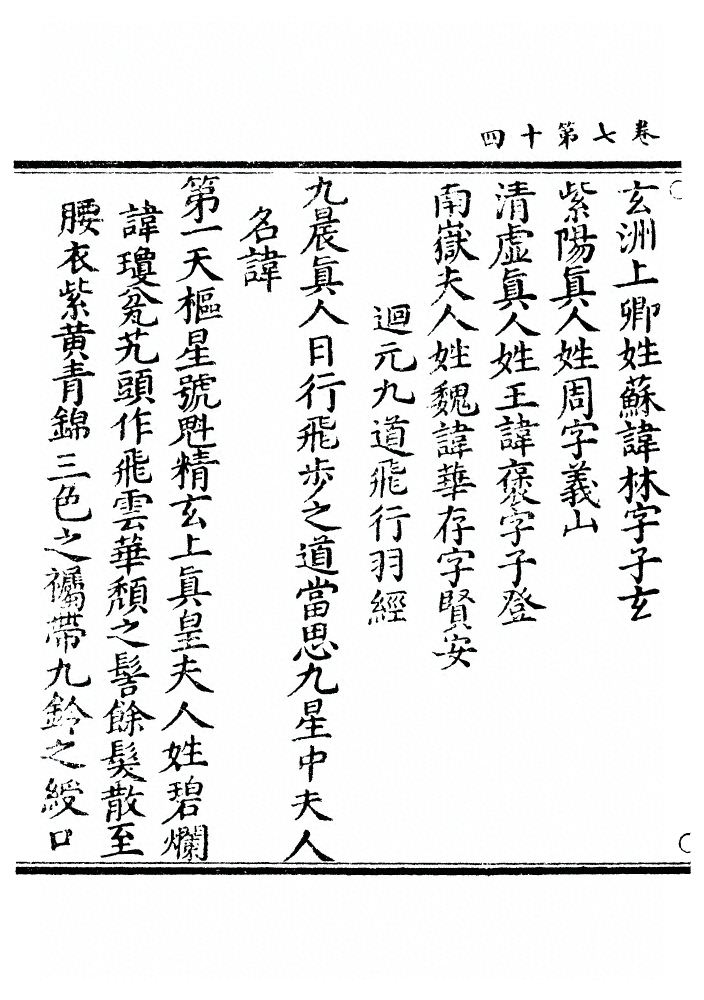 卷七第十四
玄洲上卿姓蘇諱林字子玄
紫陽眞人姓周字義山
清虛眞人姓王諱褒字子登
南嶽夫人姓魏諱華存字賢安
迴元九道飛行羽經
九晨眞人曰行飛步之道當思九星中夫人
名諱
第一天樞星號魁精玄上眞皇夫人姓碧爛
諱瓊瓮艽頭作飛雲華頹之髻餘髮散至
腰衣紫黄青錦三色之襡帶九鈴之綬口